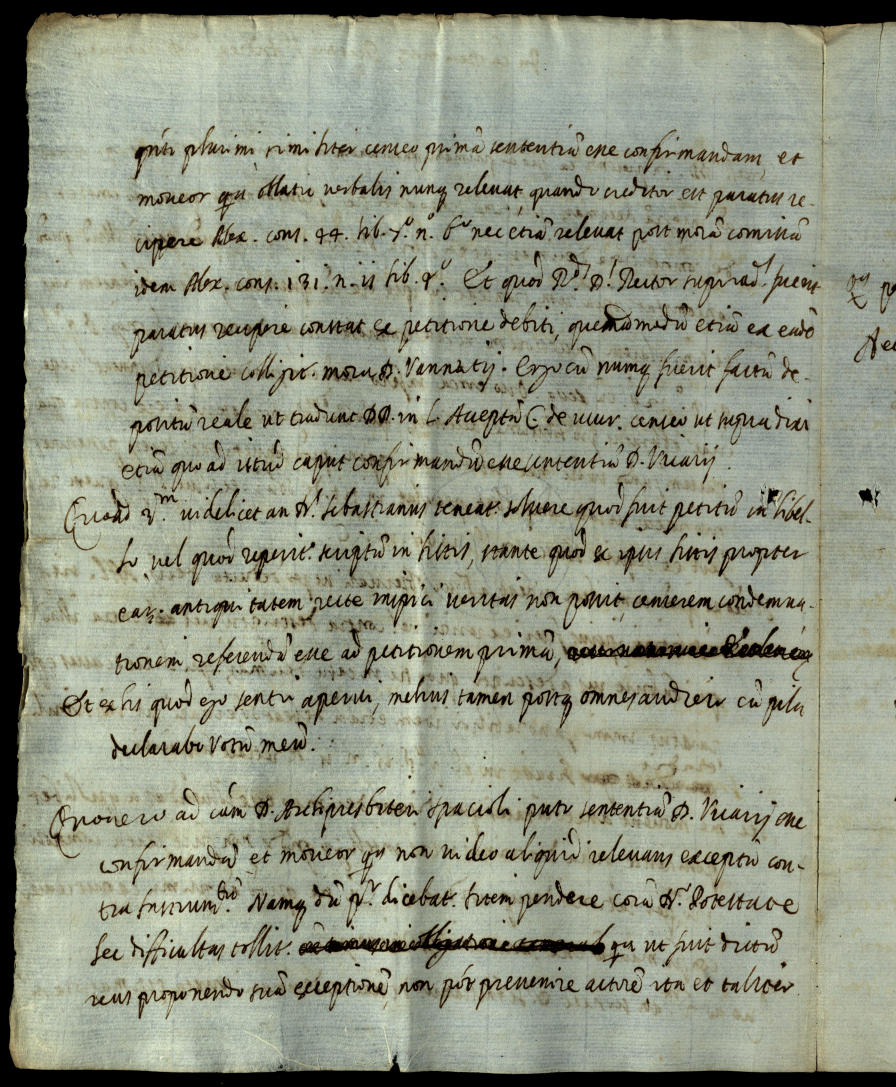 plurimi similiter censeo primā sententiā esse confirmandam, et
moveor qa oblatio verbalis nunq relevat quando creditor est paratus re-
cipere Alex. cons. 44. lib. n. 6 nec etiā relevat post morā comissā
idem Alex. cons. 131. n. 11 lib. Et quod Rd. D. Rector suprad. fuerit
paratus recipere constat ex petitione debiti, quemadmodū etiā ex eadē
petitione colligit. mora D. Vannutij. Ergo cū numq fuerit factū de-
positū reale ut tradunt DD. in l. Acceptā C. de usur. censeo ut supra dixi
etiā quo ad istud caput confirmandū esse sententiā D. Vicarij.
Quoad 2.m videlicet an D. Sebastianus teneat. solvere quod fuit petitū in libel-
lo vel quod reperit. scriptū in listis, stante quod ex ipsis listis propter
ear. antiquitatem recte inspici veritas non possit, censerem condemna-
tionem referendā esse ad petitionem primā,
Et ex his quod ego senti aperui, melius tamen postq omnes audiero cū
declarabo votū meū.
Quo vero ad cām D. Archipresbiteri Spacioli puto sententiā D. Vicarij esse
confirmandā et moveor qa non video aliquid relevans exceptū con-
tra Instrumtū. Namq dū dicebat. litem pendere corā D. Potestate
hec difficultas tollit. qa ut fuit dictū
reus proponendo suā exceptionē, non pōt prevenire actorē ita et taliter